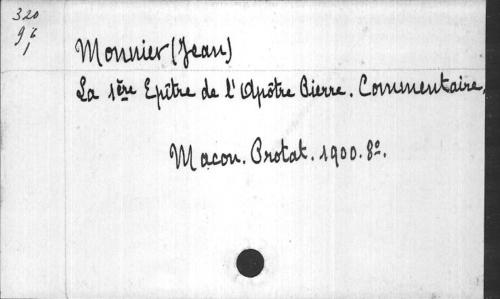 320
96
1
Monnier (Jean)
La 1ère Epître de l'Apôtre Pierre. Commentaire,
Macon. Protat. 1900. 8º.